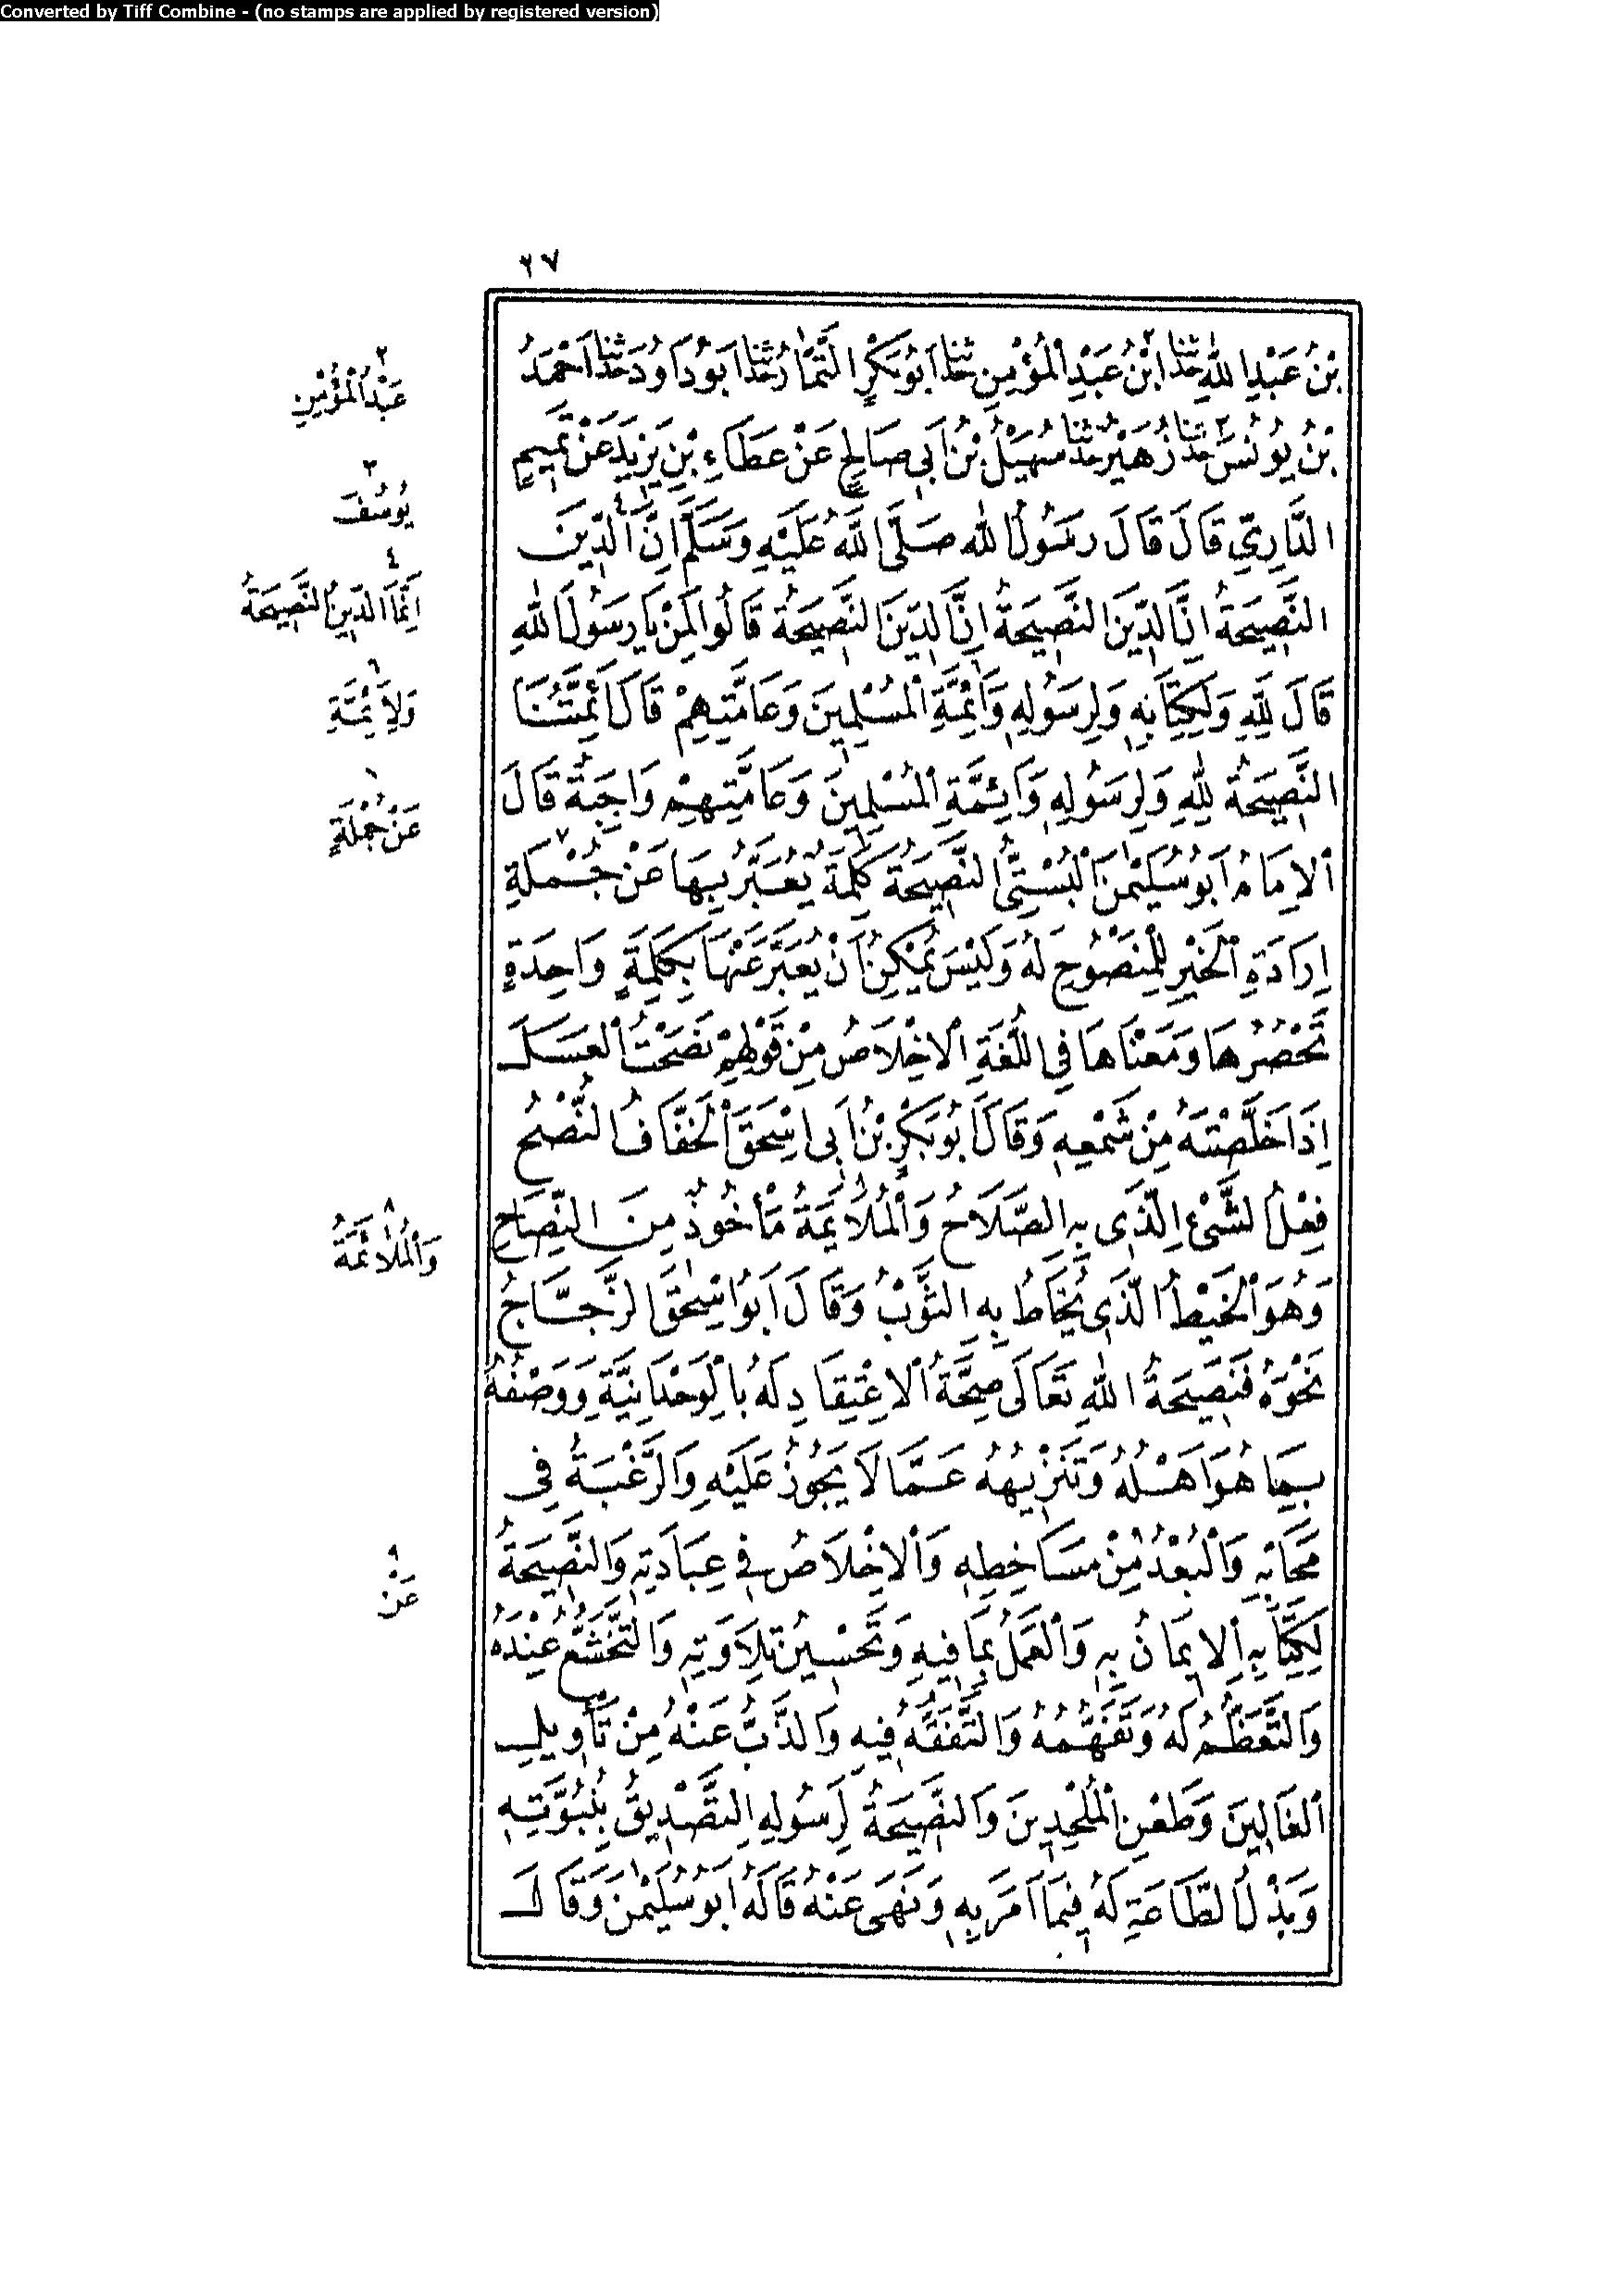 Converted by Tiff Combine - (no stamps are applied by registered version)
٢٧
بْنُ عَبْدِ اللهِ حَدَّثَنَا ٢ ابْنُ عَبْدِ الْمُؤْمِنِ حَدَّثَنَا اَبُو بَكْرٍ التَّمَّارُ حَدَّثَنَا اَبُو دَاوُدَ حَدَّثَنَا اَحْمَدُ
بْنُ يُونُسَ ٣ حَدَّثَنَا زُهَيْرٌ حَدَّثَنَا سُهَيْلُ بْنُ اَبِي صَالِحٍ عَنْ عَطَاءِ بْنِ يَزِيدَ عَنْ تَمِيمٍ
الدَّارِيِّ قَالَ قَالَ رَسُولُ اللهِ صَلَّى اللَّهُ عَلَيْهِ وَسَلَّمَ اِنَّ ٤ الدِّينَ
النَّصِيحَةُ اِنَّ الدِّينَ النَّصِيحَةُ اِنَّ الدِّينَ النَّصِيحَةُ قَالُوا لِمَنْ يَا رَسُولَ اللهِ
قَالَ لِلَّهِ وَلِكِتَابِهِ وَلِرَسُولِهِ وَاَئِمَّةِ الْمُسْلِمِينَ وَعَامَّتِهِمْ قَالَ اَئِمَّتُنَا
النَّصِيحَةُ لِلَّهِ وَلِرَسُولِهِ وَاَئِمَّةِ الْمُسْلِمِينَ وَعَامَّتِهِمْ وَاجِبَةٌ قَالَ
الْاِمَامُ اَبُو سُلَيْمٰنَ الْبُسْتِيُّ النَّصِيحَةُ كَلِمَةٌ يُعَبَّرُ بِهَا عَنْ ٧ جُمْلَةِ
اِرَادَةِ الْخَيْرِ لِلْمَنْصُوحِ لَهُ وَلَيْسَ يُمْكِنُ اَنْ يُعَبَّرَ عَنْهَا بِكَلِمَةٍ وَاحِدَةٍ
تَحْصُرُهَا وَمَعْنَاهَا فِي اللُّغَةِ الْاِخْلَاصُ مِنْ قَوْلِهِمْ نَصَحْتُ الْعَسَلَ
اِذَا خَلَّصْتَهُ مِنْ شَمْعِهِ وَقَالَ اَبُو بَكْرِ بْنُ اَبِي اِسْحٰقَ الْخَفَّافُ النُّصْحُ
فِعْلُ الشَّيْءِ الَّذِي بِهِ الصَّلَاحُ وَالْمُلَايَمَةُ ٨ مَأْخُوذٌ مِنَ النِّصَاحِ
وَهُوَ الْخَيْطُ الَّذِي يُخَاطُ بِهِ الثَّوْبُ وَقَالَ اَبُو اِسْحٰقَ الزَّجَّاجُ
نَحْوَهُ فَنَصِيحَةُ اللهِ تَعَالَى صِحَّةُ الْاِعْتِقَادِ لَهُ بِالْوَحْدَانِيَّةِ وَوَصْفُهُ
بِمَا هُوَ اَهْلُهُ وَتَنْزِيهُهُ عَمَّا لَا يَجُوزُ عَلَيْهِ وَالرَّغْبَةُ فِي
مَحَابِّهِ وَالْبُعْدُ مِنْ ٩ مَسَاخِطِهِ وَالْاِخْلَاصُ فِي عِبَادَتِهِ وَالنَّصِيحَةُ
لِكِتَابِهِ الْاِيمَانُ بِهِ وَالْعَمَلُ بِمَا فِيهِ وَتَحْسِينُ تِلَاوَتِهِ وَالتَّخَشُّعُ عِنْدَهُ
وَالتَّعَظُّمُ لَهُ وَتَفَهُّمُهُ وَالتَّفَقُّهُ فِيهِ وَالذَّبُّ عَنْهُ مِنْ تَأْوِيلِ
الْغَالِينَ وَطَعْنِ الْمُلْحِدِينَ وَالنَّصِيحَةُ لِرَسُولِهِ التَّصْدِيقُ بِنُبُوَّتِهِ
وَبَذْلُ الطَّاعَةِ لَهُ فِيمَا اَمَرَ بِهِ وَنَهَى عَنْهُ قَالَهُ اَبُو سُلَيْمٰنَ وَقَالَ
٢
عَبْدُ الْمُؤْمِنِ
٣
يُوسُفَ
٤
اِنَّمَا الدِّينُ النَّصِيحَةُ
٦
وَلِاَئِمَّةِ
عَنْ جُمْلَةٍ
٨
وَالْمُلَائَمَةُ
٩
عَنْ